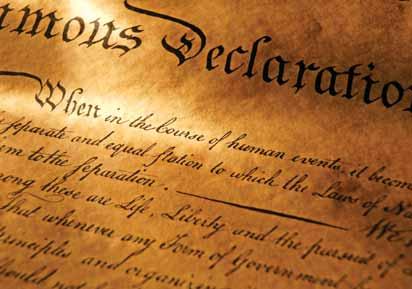 imous Declaration
When in the Course of human events, it becom
separate and equal station to which the Laws of N
em to the separation. We
ong these are Life, Liberty and the pursuit of
that whenever any Form of Government
principles and organizin
hould not